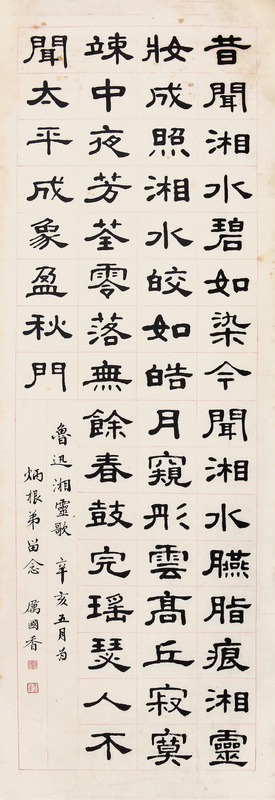 昔聞湘水碧如染今聞湘水臙脂痕湘靈
妝成照湘水皎如皓月窺彤雲髙丘寂寞
竦中夜芳荃零落無餘春鼓完瑶瑟人不
聞太平成象盈秋門
魯迅湘靈歌 辛亥五月为
炳根弟留念 厲國香